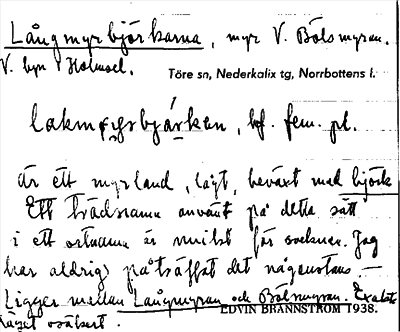 Långmyrbjörkarna, myr V. Bölsmyran.
V. byn Holmsel.
Töre sn, Nederkalix tg, Norrbottens l.
bf. fem. pl.
är ett myrland, lågt, beväxt med björk
Ett trädnamn använt på detta sätt
i ett ortnamn är unikt för socknen. Jag
har aldrig påträffat det någonstans.—
Ligger mellan Långmyran och Bölsmyran. Exakta
läget osäkert.
EDVIN BRÄNNSTRÖM 1938.